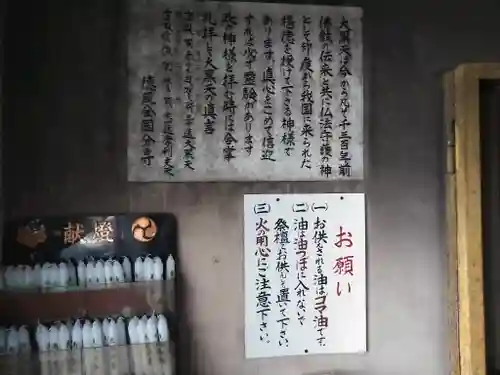 大黒天は今から凡そ千三百年前
佛教の伝来と共に仏法守護の神
として印度から我国に来られた
福徳を授けて下さる神様で
あります。真心をこめて信迎
すれば必ず霊験があります
此の神様を拝む時には合掌
礼拝して大黒天の真言
護国金国分寺
お願い
(一) お供えされる油はゴマ油です。
(二) 油は油つぼに入れないで
祭壇にお供えして置いて下さい。
(三) 火の用心にご注意下さい。
献燈